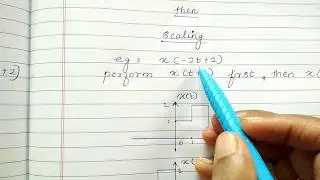 then
Scaling
eg: x(-2t+2)
+2)
perform x(t+ first, then x(
x(t)
2
1
0
2